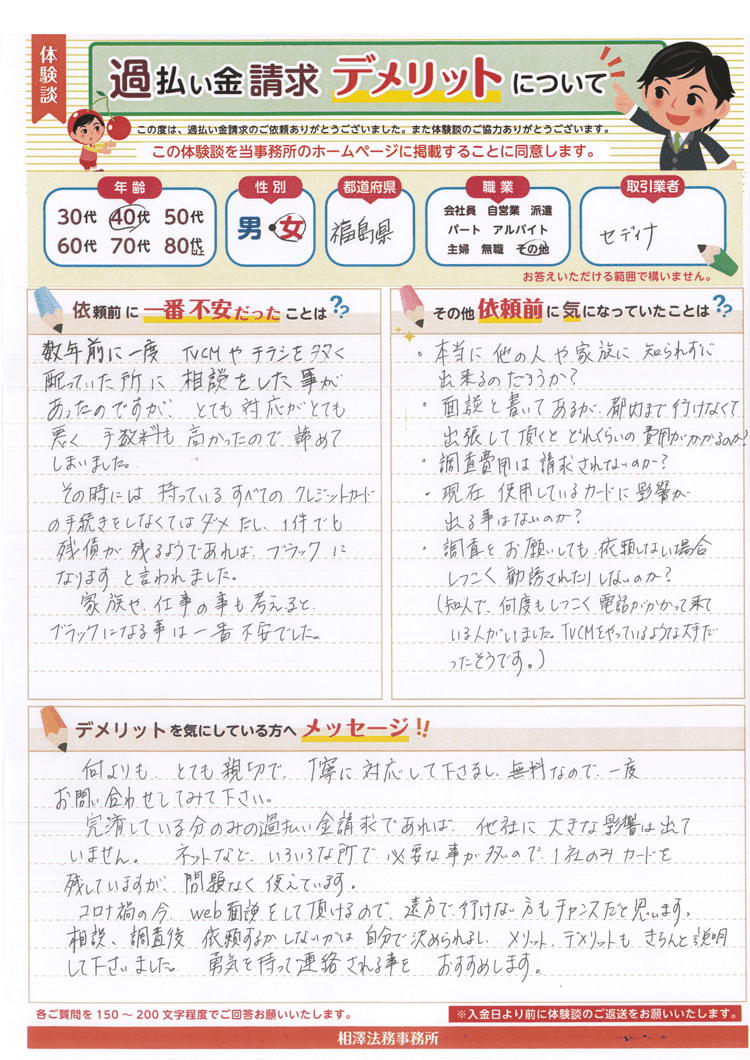 体験談
過払い金請求 デメリットについて
この度は、過払い金請求のご依頼ありがとうございました。また体験談のご協力ありがとうございます。
この体験談を当事務所のホームページに掲載することに同意します。
年齢
30代 40代 50代
60代 70代 80代以上
性別
男・女
都道府県
福島県
職業
会社員 自営業 派遣
パート アルバイト
主婦 無職 その他
取引業者
セディナ
お答えいただける範囲で構いません。
依頼前に一番不安だったことは??
数年前に一度 TVCMやチラシを多く
配っていた所に 相談をした事が
あったのですが、とても対応がとても
悪く 手数料も高かったので、諦めて
しまいました。
その時には 持っているすべての クレジットカード
の手続きをしなくてはダメだし、1件でも
残債が残るようであれば、ブラックに
なりますと言われました。
家族や、仕事の事も考えると、
ブラックになる事は一番不安でした。
その他依頼前に気になっていたことは??
・本当に他の人や家族に知られずに
出来るのだろうか?
・面談と書いてあるが、都内まで行けなくて
出張して頂くとどれくらいの費用がかかるのか?
・調査費用は請求されないのか?
・現在使用しているカードに影響が
出る事はないのか?
・調査をお願いしても、依頼しない場合
しつこく勧誘されたりしないのか?
(知人で、何度もしつこく電話がかかって来て
いる人がいました。TVCMをやっているような大手だ
ったそうです。)
デメリットを気にしている方へメッセージ!!
何よりも、とても親切で、丁寧に対応して下さるし、無料なので、一度
お問い合わせしてみて下さい。
完済している分のみの過払い金請求であれば、他社に大きな影響は出て
いません。 ネットなど、いろいろな所で必要な事が多いので、1社のみカードを
残していますが、問題なく使えています。
コロナ禍の今、web面談をして頂けるので、遠方で行けない方もチャンスだと思います。
相談、調査後 依頼するかしないかは自分で決められるし、メリット、デメリットもきちんと説明
して下さいました。 勇気を持って連絡される事を おすすめします。
各ご質問を150~200文字程度でご回答お願いいたします。
※入金日より前に体験談のご返送をお願いいたします。
相澤法務事務所